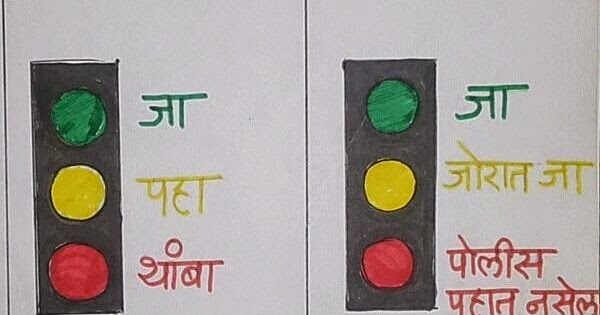 जा
पहा
थांबा
जा
जोरात जा
पोलीस
पहात नसेल